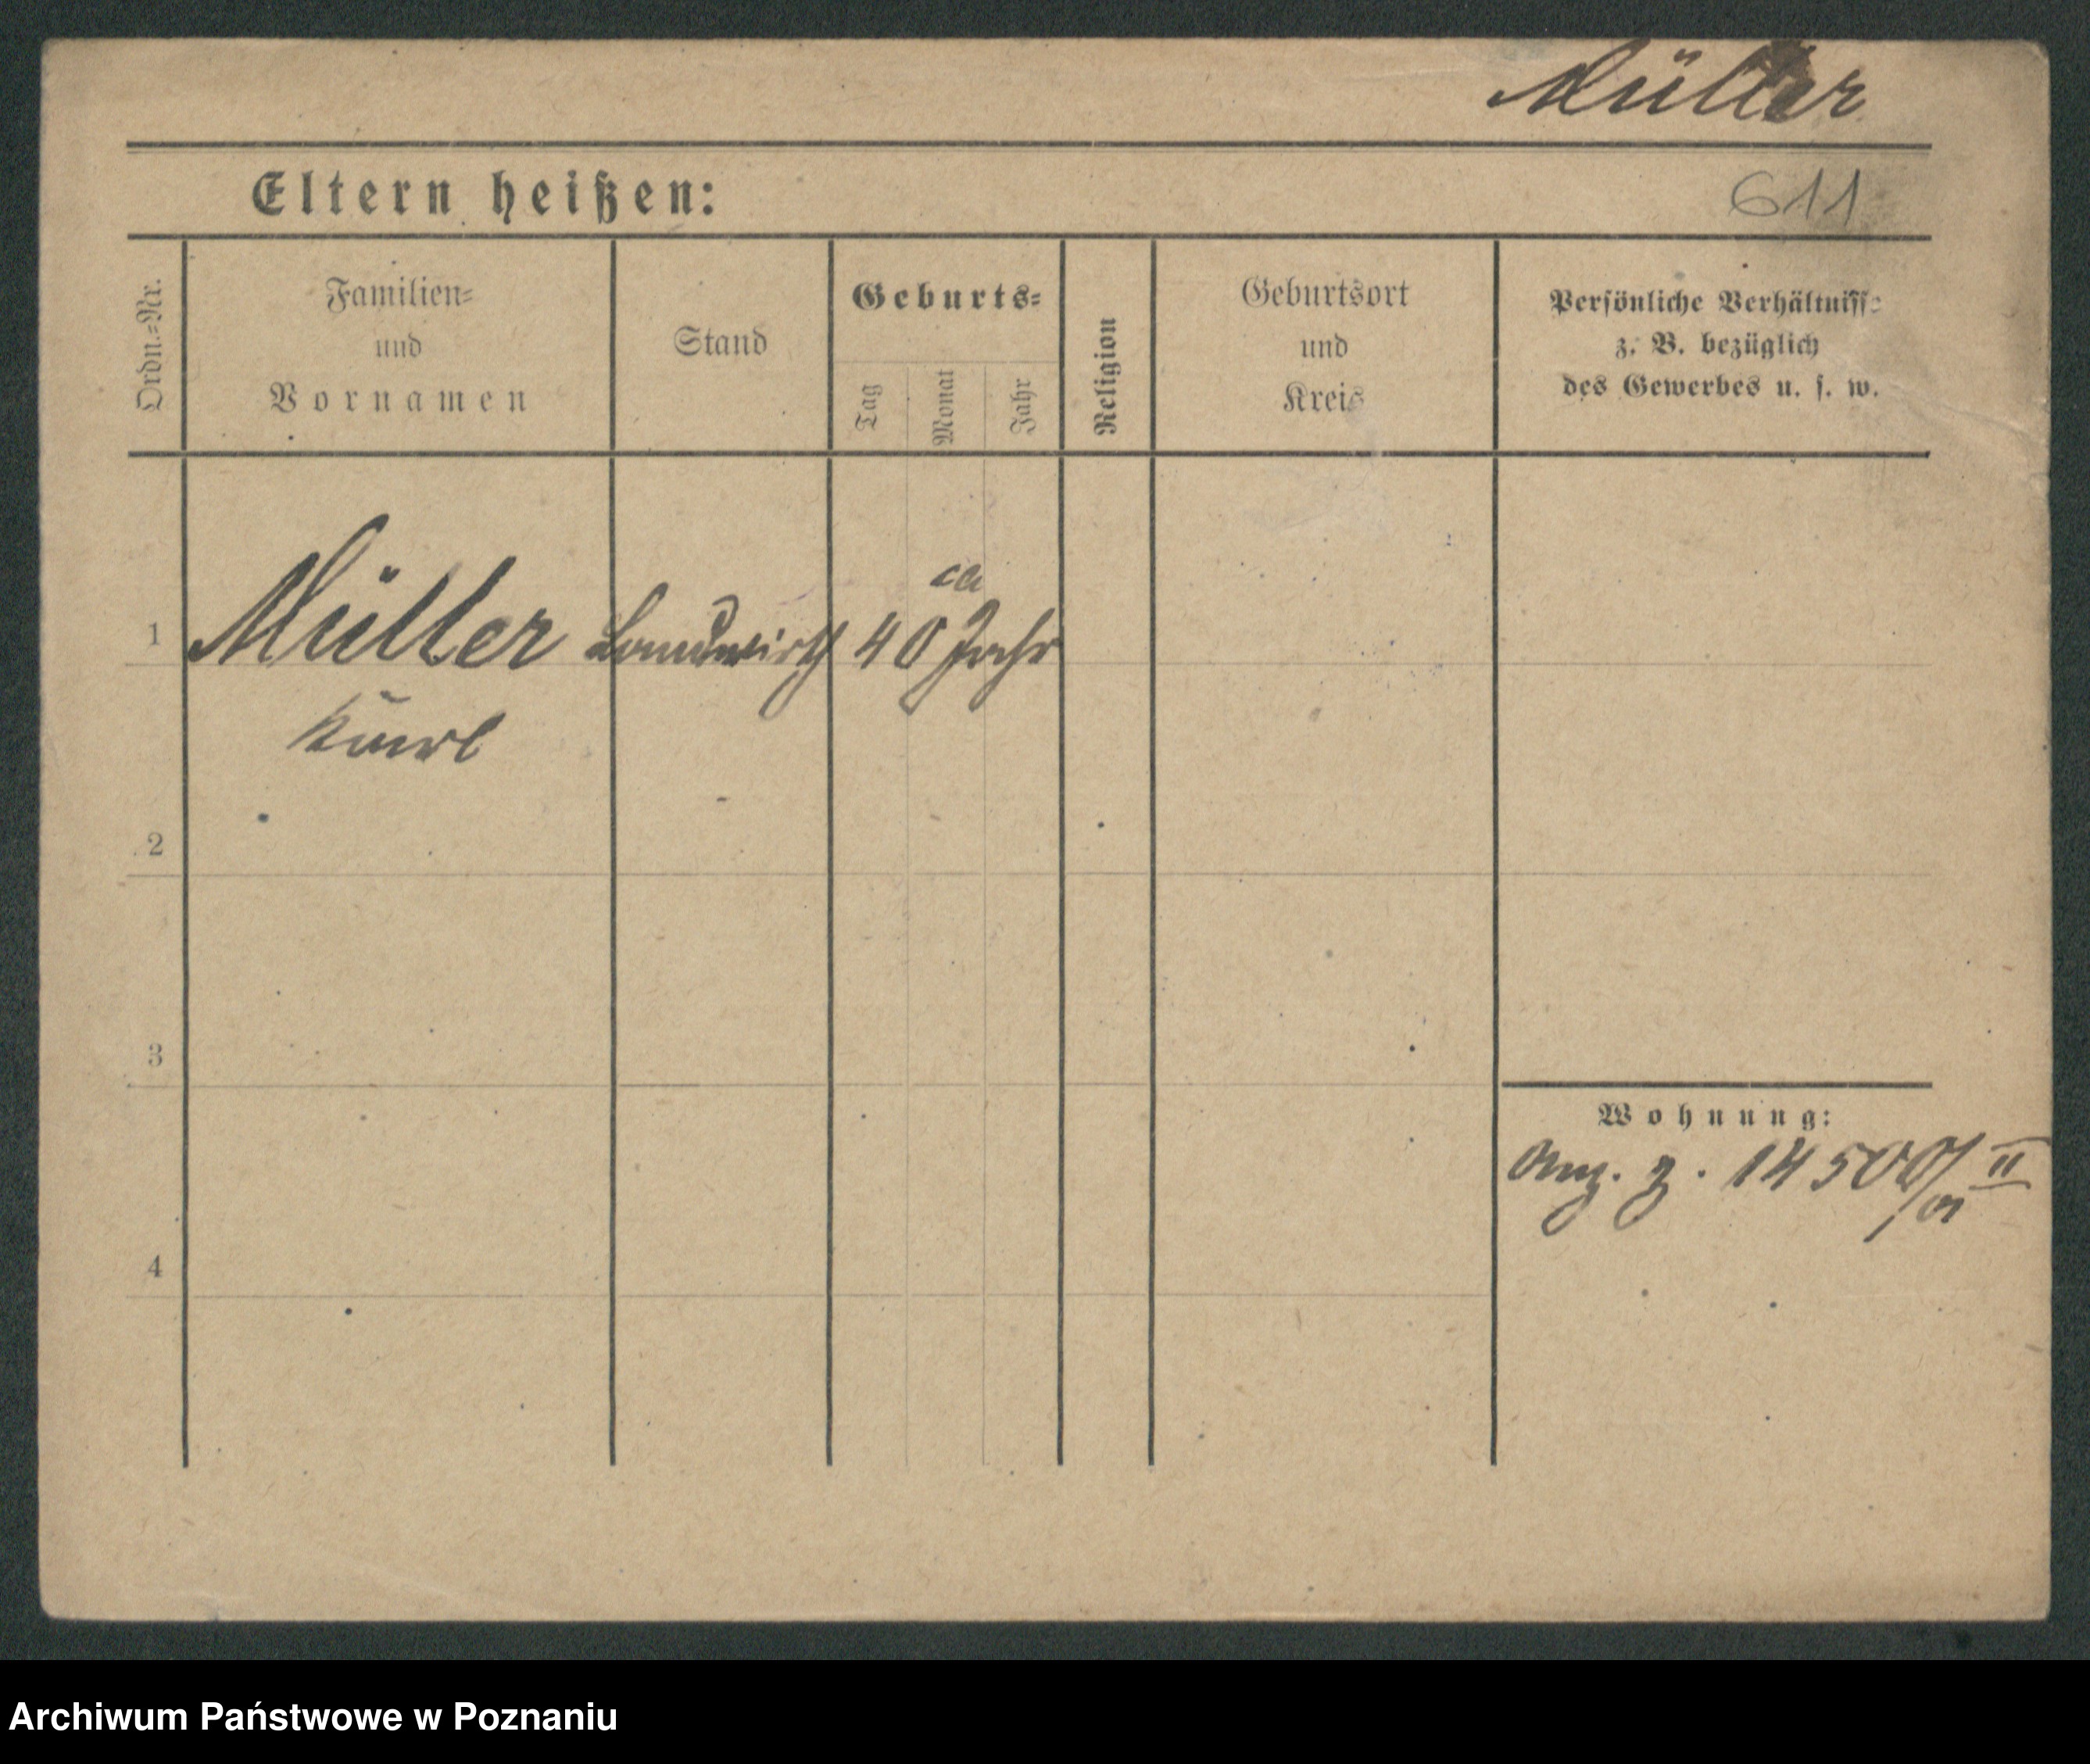 Müller
Eltern heißen:
611
Ordn.=Nr.
Familien=
und
Vornamen
Stand
Geburts=
Tag
Monat
Jahr
Religion
Geburtsort
und
Kreis
Persönliche Verhältnisse
z. B. bezüglich
des Gewerbes u. s. w.
ca
1 Müller Landwirth 40 Jahr
Karl
2
3
Wohnung:
Anz. z. 14500/01 II
4
Archiwum Państwowe w Poznaniu